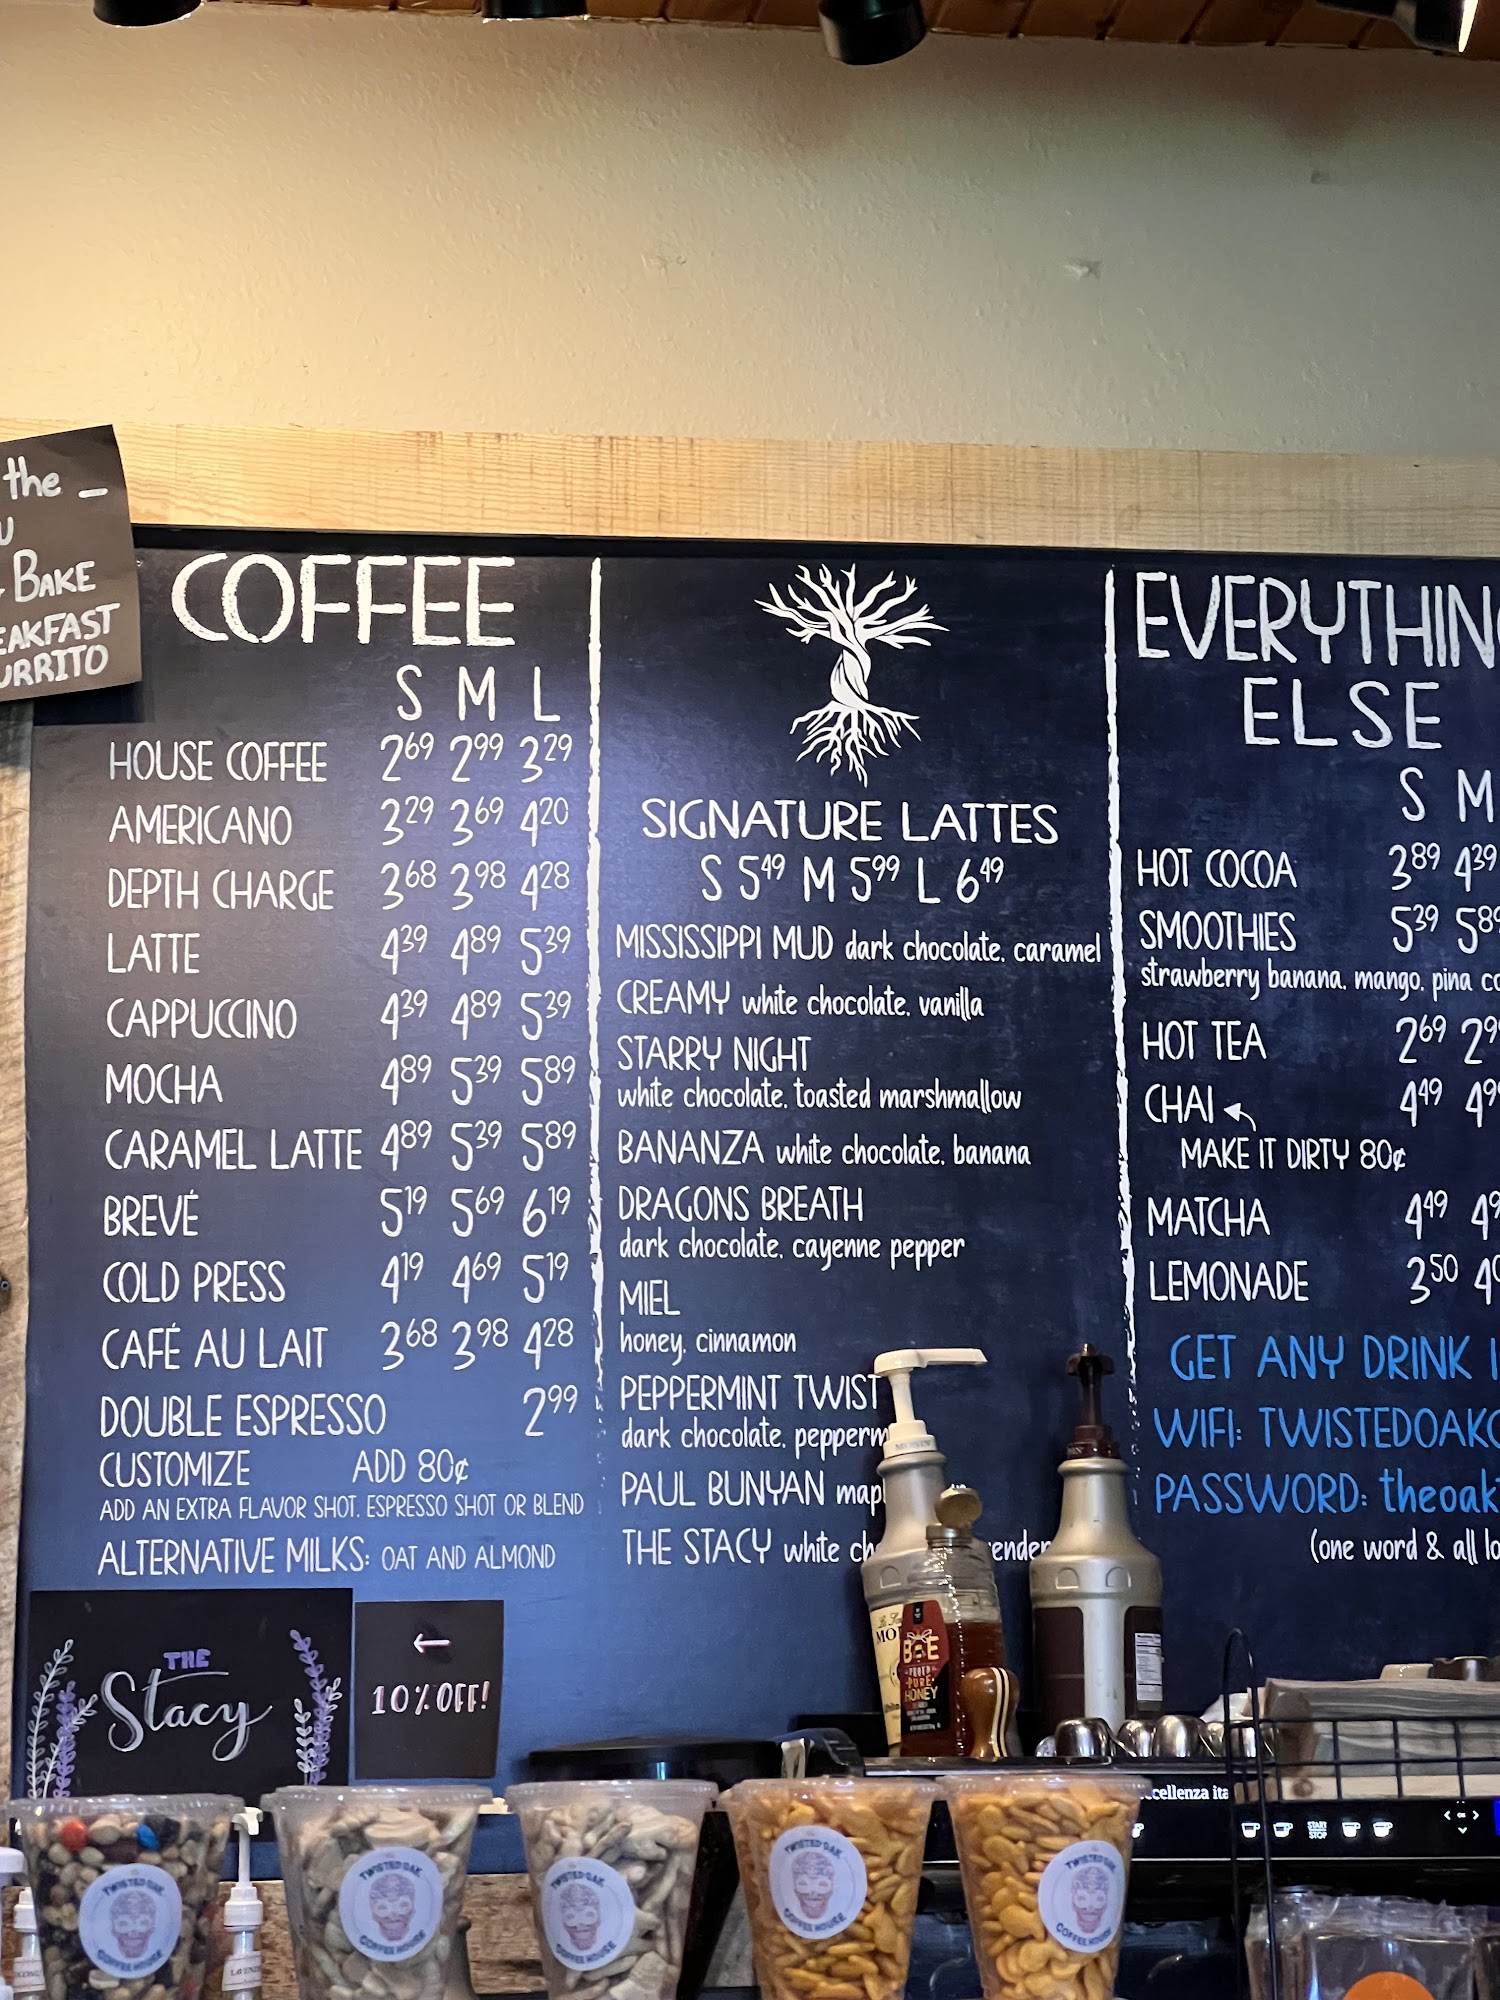 the
BAKE
COFFEE
S M L
HOUSE COFFEE 2.69 2.99 3.29
AMERICANO 3.29 3.69 4.20
DEPTH CHARGE 3.68 3.98 4.28
LATTE 4.39 4.89 5.39
CAPPUCCINO 4.39 4.89 5.39
MOCHA 4.89 5.39 5.89
CARAMEL LATTE 4.89 5.39 5.89
BREVÉ 5.19 5.69 6.19
COLD PRESS 4.19 4.69 5.19
CAFÉ AU LAIT 3.68 3.98 4.28
DOUBLE ESPRESSO 2.99
CUSTOMIZE ADD 80¢
ADD AN EXTRA FLAVOR SHOT, ESPRESSO SHOT OR BLEND
ALTERNATIVE MILKS: OAT AND ALMOND
THE
Stacy
←
10% OFF!
SIGNATURE LATTES
S 5.49 M 5.99 L 6.49
MISSISSIPPI MUD dark chocolate, caramel
CREAMY white chocolate, vanilla
STARRY NIGHT
white chocolate, toasted marshmallow
BANANZA white chocolate, banana
DRAGONS BREATH
dark chocolate, cayenne pepper
MIEL
honey, cinnamon
PEPPERMINT TWIST
dark chocolate, pepperm
PAUL BUNYAN map
THE STACY white ch
EVERYTHING
ELSE
S M
HOT COCOA 3.89 4.39
SMOOTHIES 5.39 5.89
strawberry banana, mango, pina co
HOT TEA 2.69 2.9
CHAI 4.49 4.9
MAKE IT DIRTY 80¢
MATCHA 4.49 4.9
LEMONADE 3.50
GET ANY DRINK
WIFI: TWISTEDOAK
PASSWORD: theoak
(one word & all lo
BEE
PURE
HONEY
START
STOP
TWISTED OAK
COFFEE HOUSE
TWISTED OAK
COFFEE HOUSE
TWISTED OAK
COFFEE HOUSE
TWISTED OAK
COFFEE HOUSE
TWISTED OAK
COFFEE HOUSE